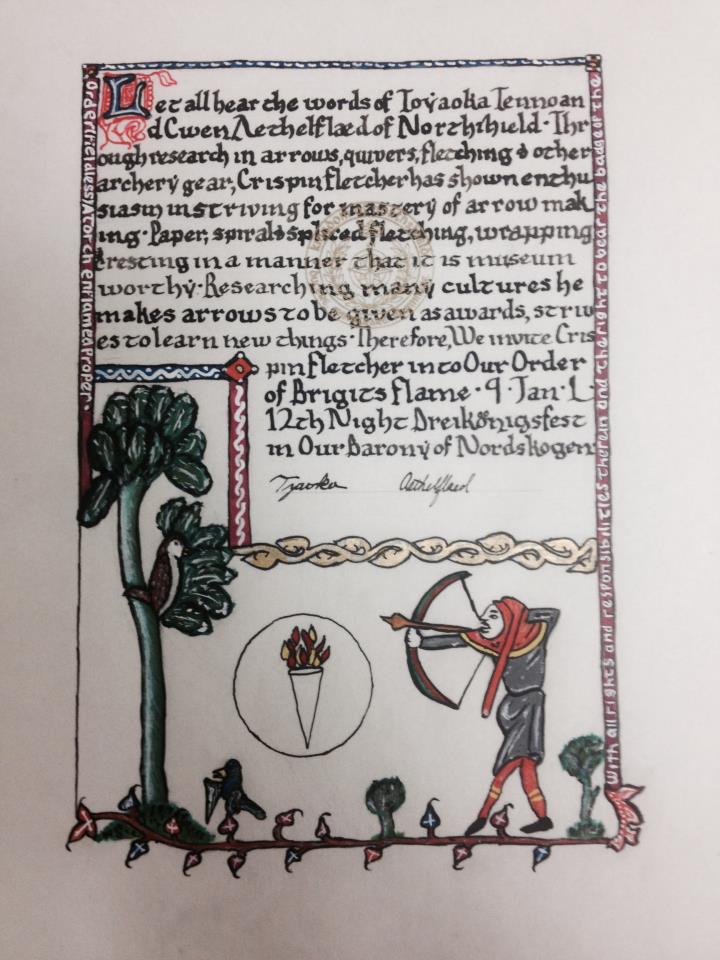 Let all hear the words of Toyaoka Tennoan
d Cwen Aethelflaed of Northshield · Thr
ough research in arrows, quivers, fletching & other
archery gear, Crispin fletcher has shown enthu
siasm in striving for mastery of arrow mak
ing · Paper, spiral & spliced fletching, wrapping
cresting in a manner that it is museum
worthy · Researching many cultures he
makes arrows to be given as awards, striv
es to learn new things · Therefore, We invite Cris
pin Fletcher into Our Order
of Brigits Flame · 9 · Jan · L
12th Night Dreikönigsfest
in Our Barony of Nordskogen
Aethelflaed
With all rights and responsibilities therein and the right to bear the badge of the
Order (fieldless) A torch enflamed Proper.